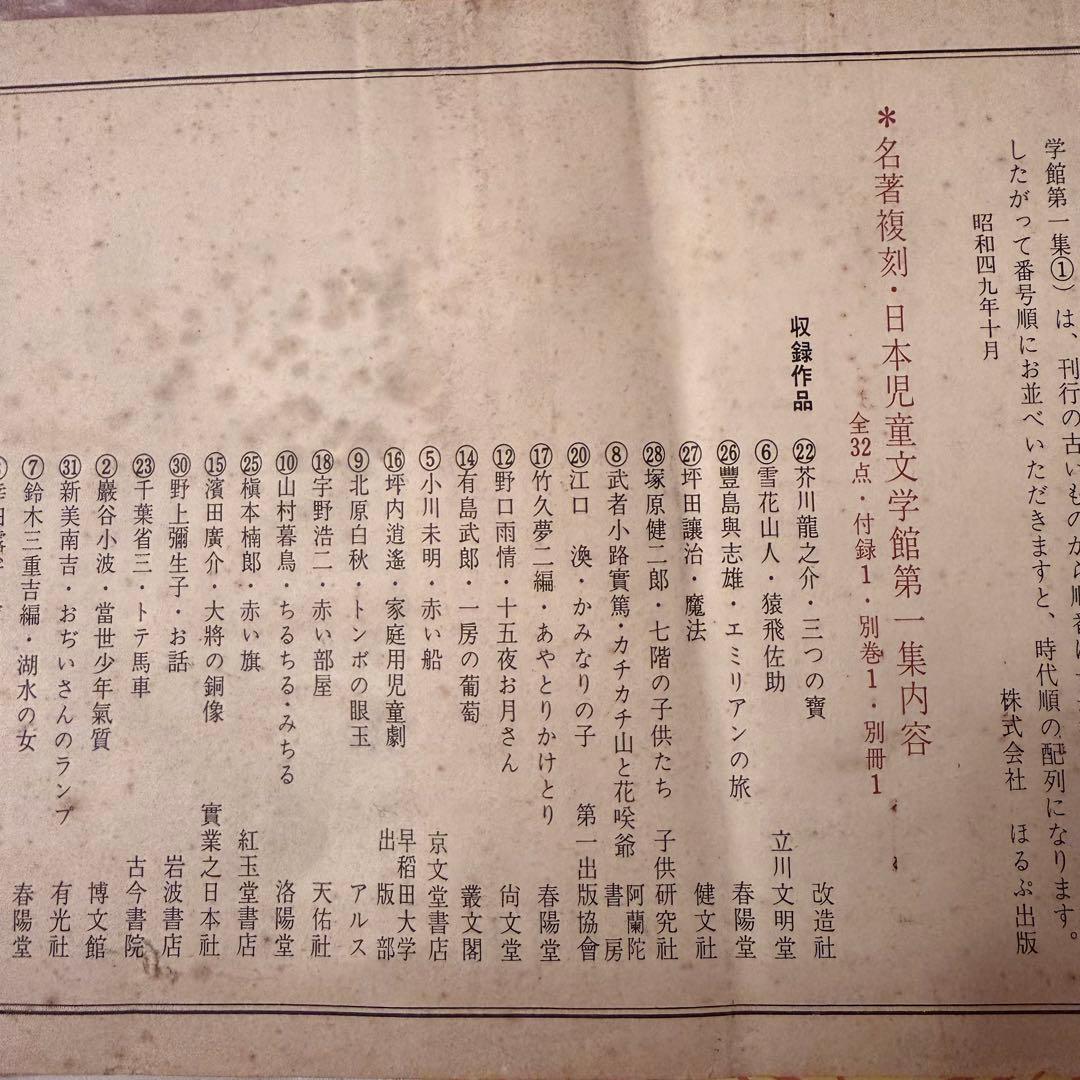 学館第一集①)は、刊行の古いものから順番に
したがって番号順にお並べいただきますと、時代順の配列になります。
昭和四九年十月
株式会社 ほるぷ出版
*名著複刻・日本児童文学館第一集内容
全32点・付録1・別巻1・別冊1
収録作品
㉒芥川龍之介・三つの寶 改造社
⑥雪花山人・猿飛佐助 立川文明堂
㉖豐島與志雄・エミリアンの旅 春陽堂
㉗坪田讓治・魔法 健文社
㉘塚原健二郎・七階の子供たち 子供研究社
⑧武者小路實篤・カチカチ山と花咲爺 阿蘭陀書房
⑳江口 渙・かみなりの子 第一出版協會
⑰竹久夢二編・あやとりかけとり 春陽堂
⑫野口雨情・十五夜お月さん 尙文堂
⑭有島武郎・一房の葡萄 叢文閣
⑤小川未明・赤い船 京文堂書店
⑯坪内逍遙・家庭用児童劇 早稲田大学出版部
⑨北原白秋・トンボの眼玉 アルス
⑱宇野浩二・赤い部屋 天佑社
⑩山村暮鳥・ちるちる・みちる 洛陽堂
㉕槇本楠郎・赤い旗 紅玉堂書店
⑮濱田廣介・大將の銅像 實業之日本社
㉚野上彌生子・お話 岩波書店
㉓千葉省三・トテ馬車 古今書院
②巖谷小波・當世少年氣質 博文館
㉛新美南吉・おぢいさんのランプ 有光社
⑦鈴木三重吉編・湖水の女 春陽堂